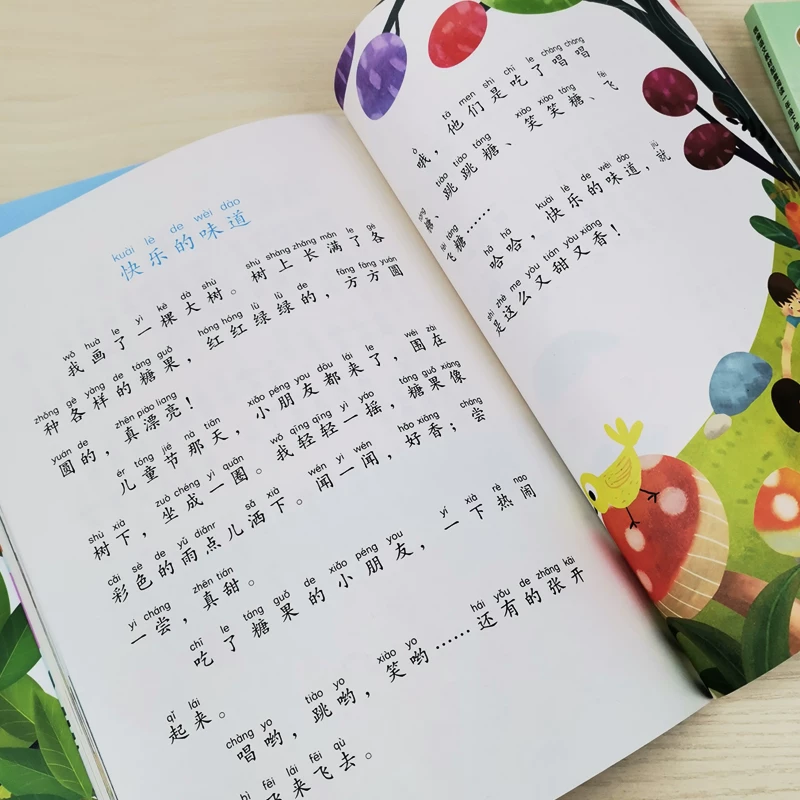 kuài lè de wèi dào
快乐的味道
wǒ huà le yì kē dà shù shù shàng zhǎng mǎn le gè
我画了一棵大树。树上长满了各
zhǒng gè yàng de táng guǒ hóng hóng lǜ lǜ de fāng fāng yuán
种各样的糖果，红红绿绿的，方方圆
yuán de zhēn piào liang
圆的，真漂亮！
ér tóng jié nà tiān xiǎo péng you dōu lái le wéi zài
儿童节那天，小朋友都来了，围在
shù xià zuò chéng yì quān wǒ qīng qīng yì yáo táng guǒ xiàng
树下，坐成一圈。我轻轻一摇，糖果像
cǎi sè de yǔ diǎnr sǎ xià wén yi wén hǎo xiāng cháng
彩色的雨点儿洒下。闻一闻，好香；尝
yi cháng zhēn tián
一尝，真甜。
chī le táng guǒ de xiǎo péng you yí xià rè nao
吃了糖果的小朋友，一下热闹
qǐ lái
起来。
chàng yo tiào yo xiào yo hái yǒu de zhāng kāi
唱哟，跳哟，笑哟……还有的张开
fēi lái fēi qù
飞来飞去。
ò tā men shì chī le chàng chàng
哦，他们是吃了唱唱
táng tiào tiào táng xiào xiào táng fēi
糖、跳跳糖、笑笑糖、飞
fēi táng
飞糖……
hā hā kuài lè de wèi dào jiù
哈哈，快乐的味道，就
shì zhè me yòu tián yòu xiāng
是这么又甜又香！